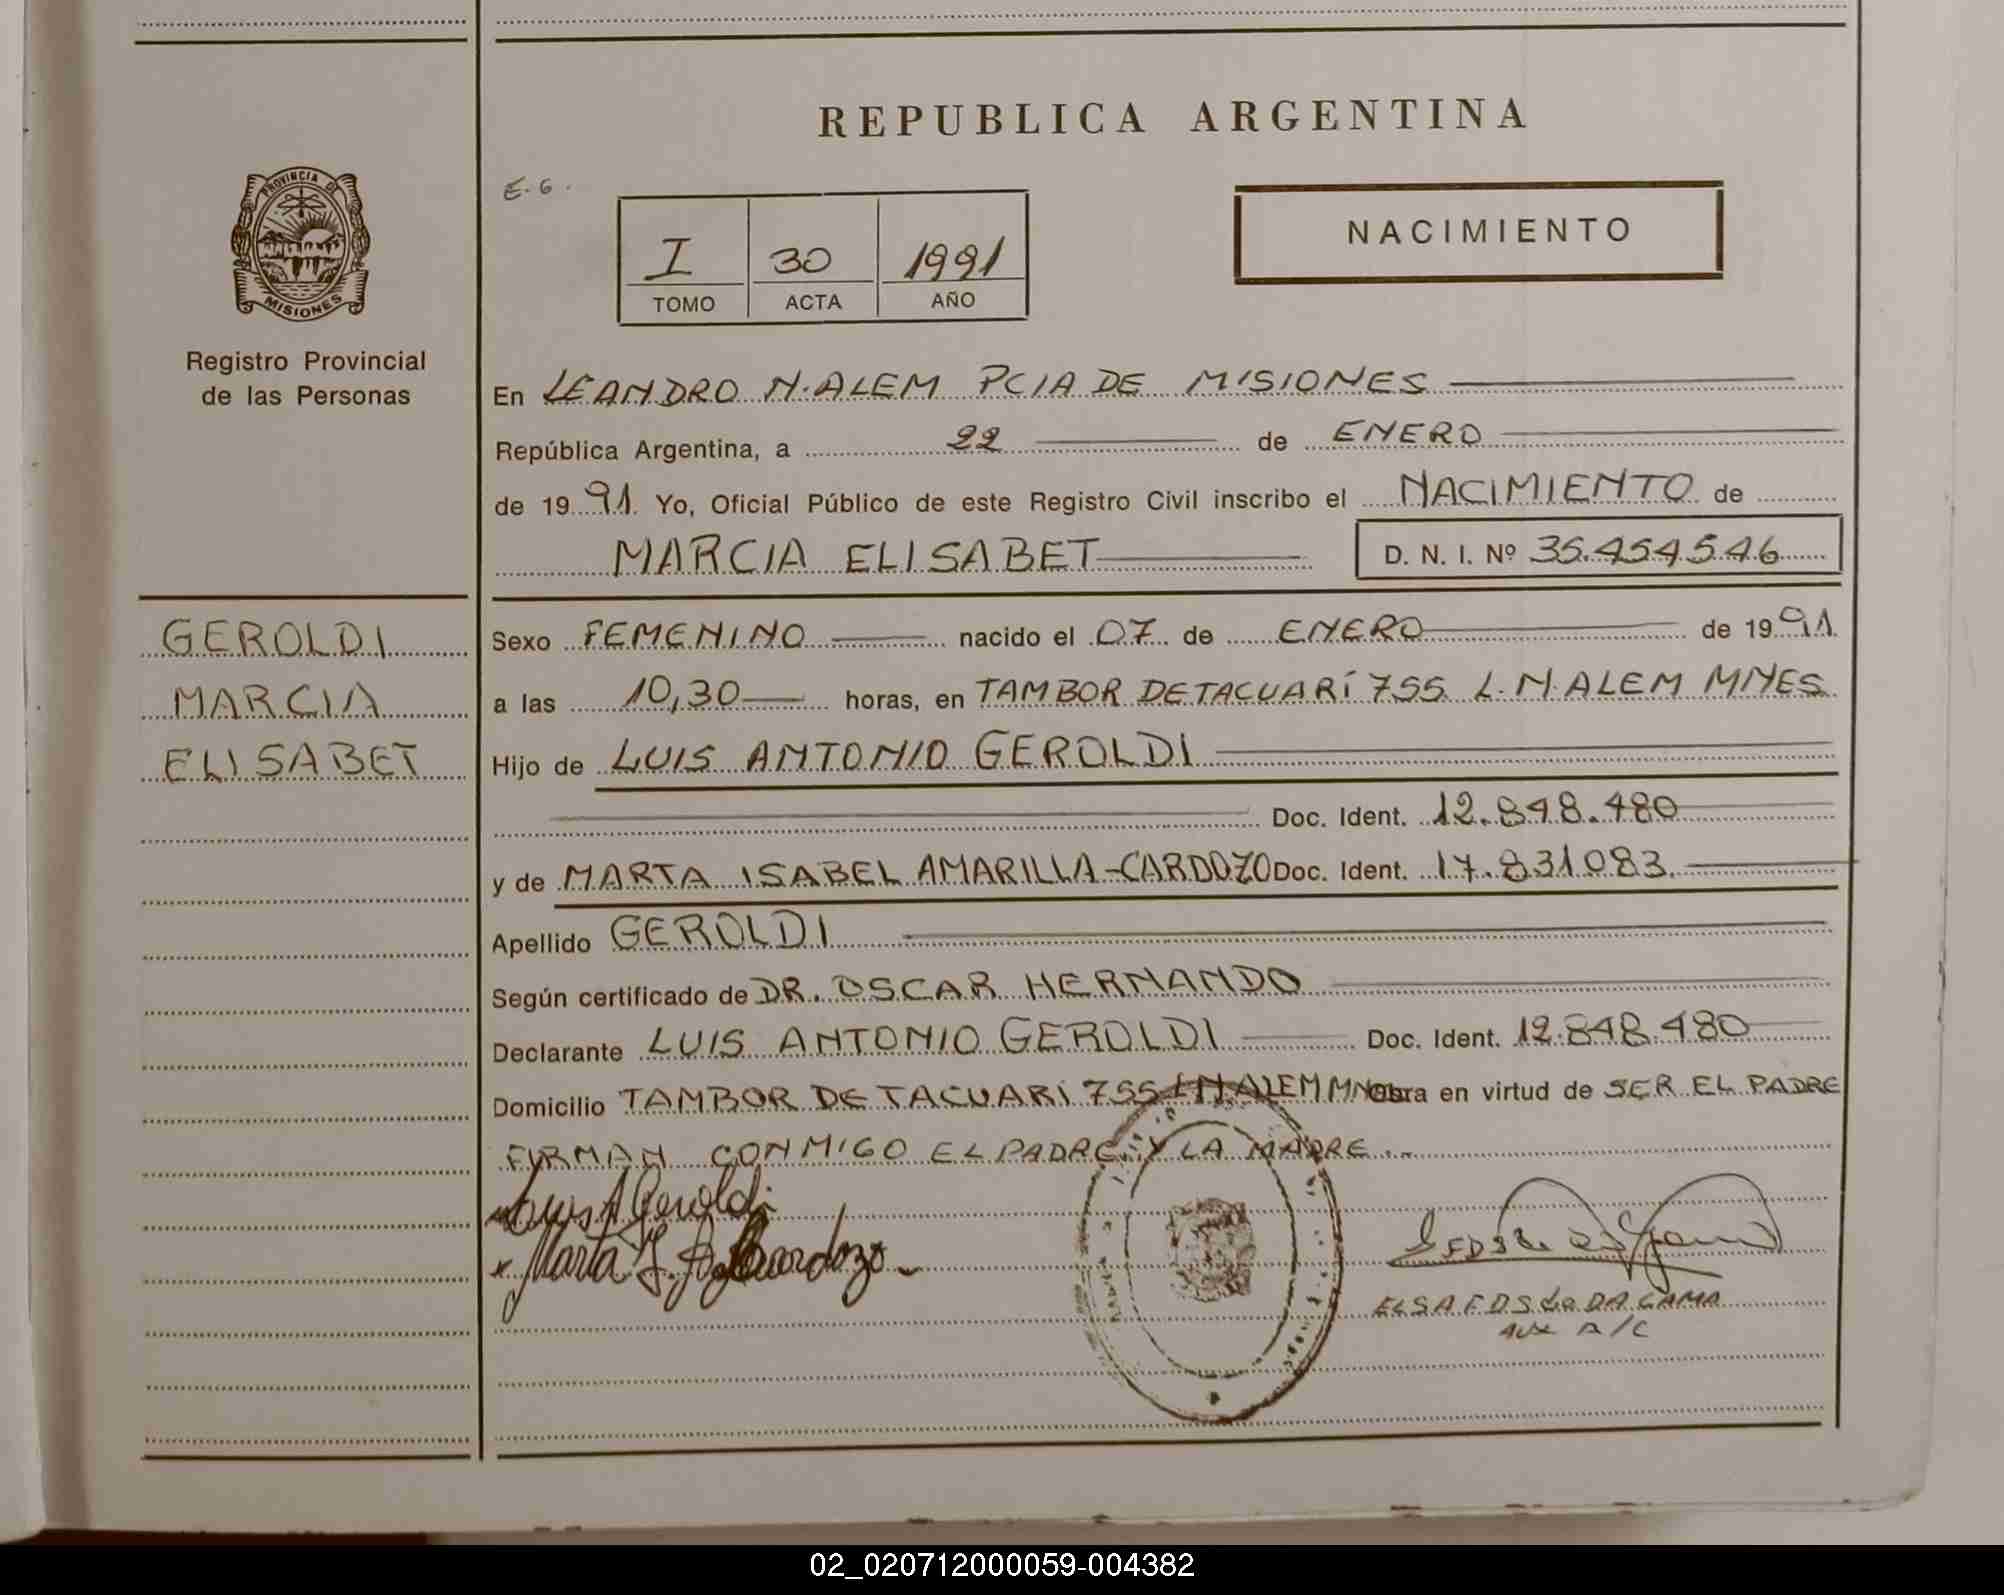 REPUBLICA ARGENTINA
E. 6.
PROVINCIA DE
MISIONES
Registro Provincial
de las Personas
I 30 1991
TOMO ACTA AÑO
NACIMIENTO
En LEANDRO N. ALEM PCIA DE MISIONES
República Argentina, a 22 de ENERO
de 1991. Yo, Oficial Público de este Registro Civil inscribo el NACIMIENTO de
MARCIA ELISABET D. N. I. Nº 35.454546
GEROLDI
MARCIA
ELISABET
Sexo FEMENINO nacido el 07 de ENERO de 1991.
a las 10,30 horas, en TAMBOR DE TACUARÍ 755 L. N. ALEM MNES
Hijo de LUIS ANTONIO GEROLDI
Doc. Ident. 12.848.480
y de MARTA ISABEL AMARILLA-CARDOZO Doc. Ident. 17.831083.
Apellido GEROLDI
Según certificado de DR. OSCAR HERNANDO
Declarante LUIS ANTONIO GEROLDI Doc. Ident. 12.848.480
Domicilio TAMBOR DE TACUARÍ 755 L N ALEM MNES Obra en virtud de SER EL PADRE
FIRMAN CONMIGO EL PADRE Y LA MADRE..
Luis A Geroldi
Marta I. Cardozo
ELSA F. D S DA GAMA
AUX A/C
02_020712000059-004382